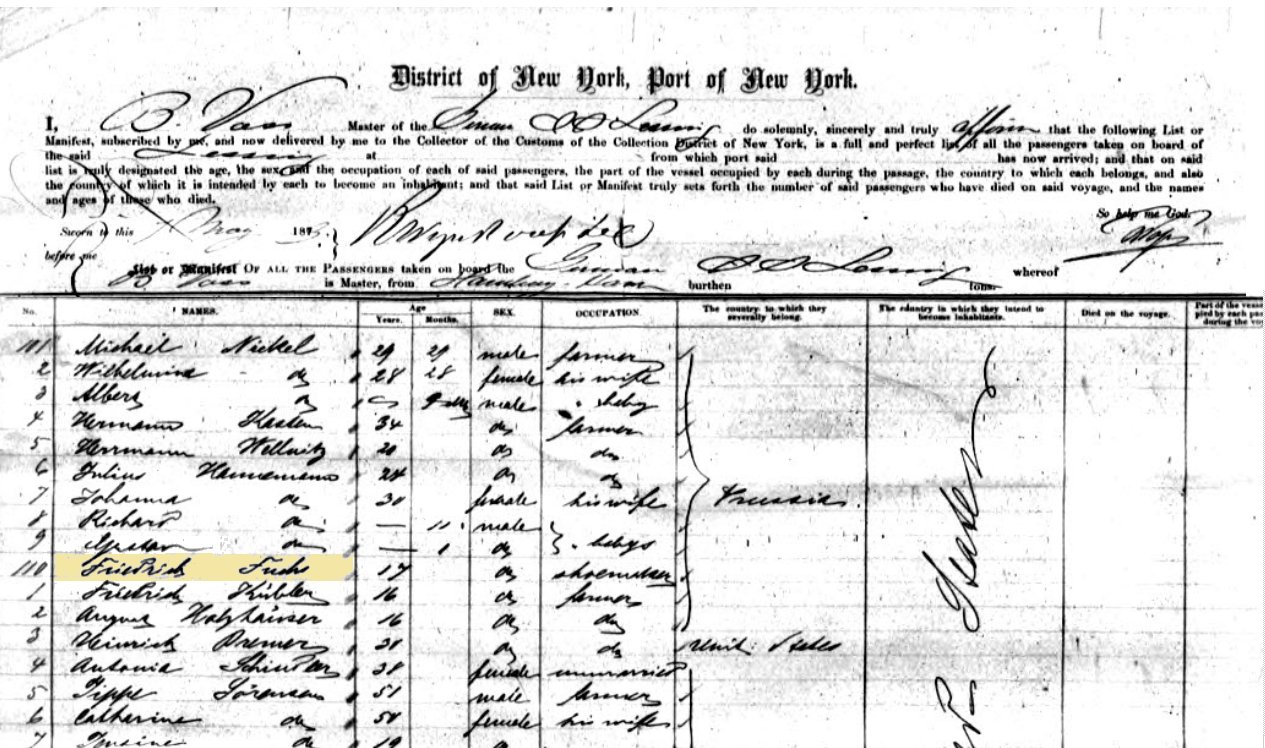 District of New York, Port of New York.
I, B Voss Master of the German SS Lessing do solemnly, sincerely and truly affirm that the following List or
Manifest, subscribed by me, and now delivered by me to the Collector of the Customs of the Collection District of New York, is a full and perfect list of all the passengers taken on board of
the said Lessing at from which port said has now arrived; and that on said
list is truly designated the age, the sex, and the occupation of each of said passengers, the part of the vessel occupied by each during the passage, the country to which each belongs, and also
the country of which it is intended by each to become an inhabitant; and that said List or Manifest truly sets forth the number of said passengers who have died on said voyage, and the names
and ages of those who died.
So help me God.
Sworn to this May 187
before me
List or Manifest OF ALL THE PASSENGERS taken on board the German SS Lessing whereof
B Voss is Master, from burthen tons.
No. NAMES. Age Years. Months. SEX. OCCUPATION. The country to which they severally belong. The country in which they intend to become inhabitants. Died on the voyage. Part of the vess pied by each pas during the vo
101 Michael Nickel 29 29 male farmer
2 Wilhelmine do 28 28 female his wife
3 Albert do 9 male baby
4 Hermann 34 do farmer
5 Herrmann Wellnitz 20 do do
6 Julius Hannemann 24 do do
7 Johanna do 30 female his wife Prussia
8 Richard do — 11 male
9 Gustav do — 1 do babys
110 Friedrich Fuchs 17 do shoemaker
1 Friedrich Kübler 16 do farmer
2 August Holzhäuser 16 do do
3 Heinrich Bremer 30 do do Unit: States
4 Antonia 38 female unmarried
5 Jeppe Sörensen 51 male farmer
6 Catherine do 50 female his wife
7 do 19